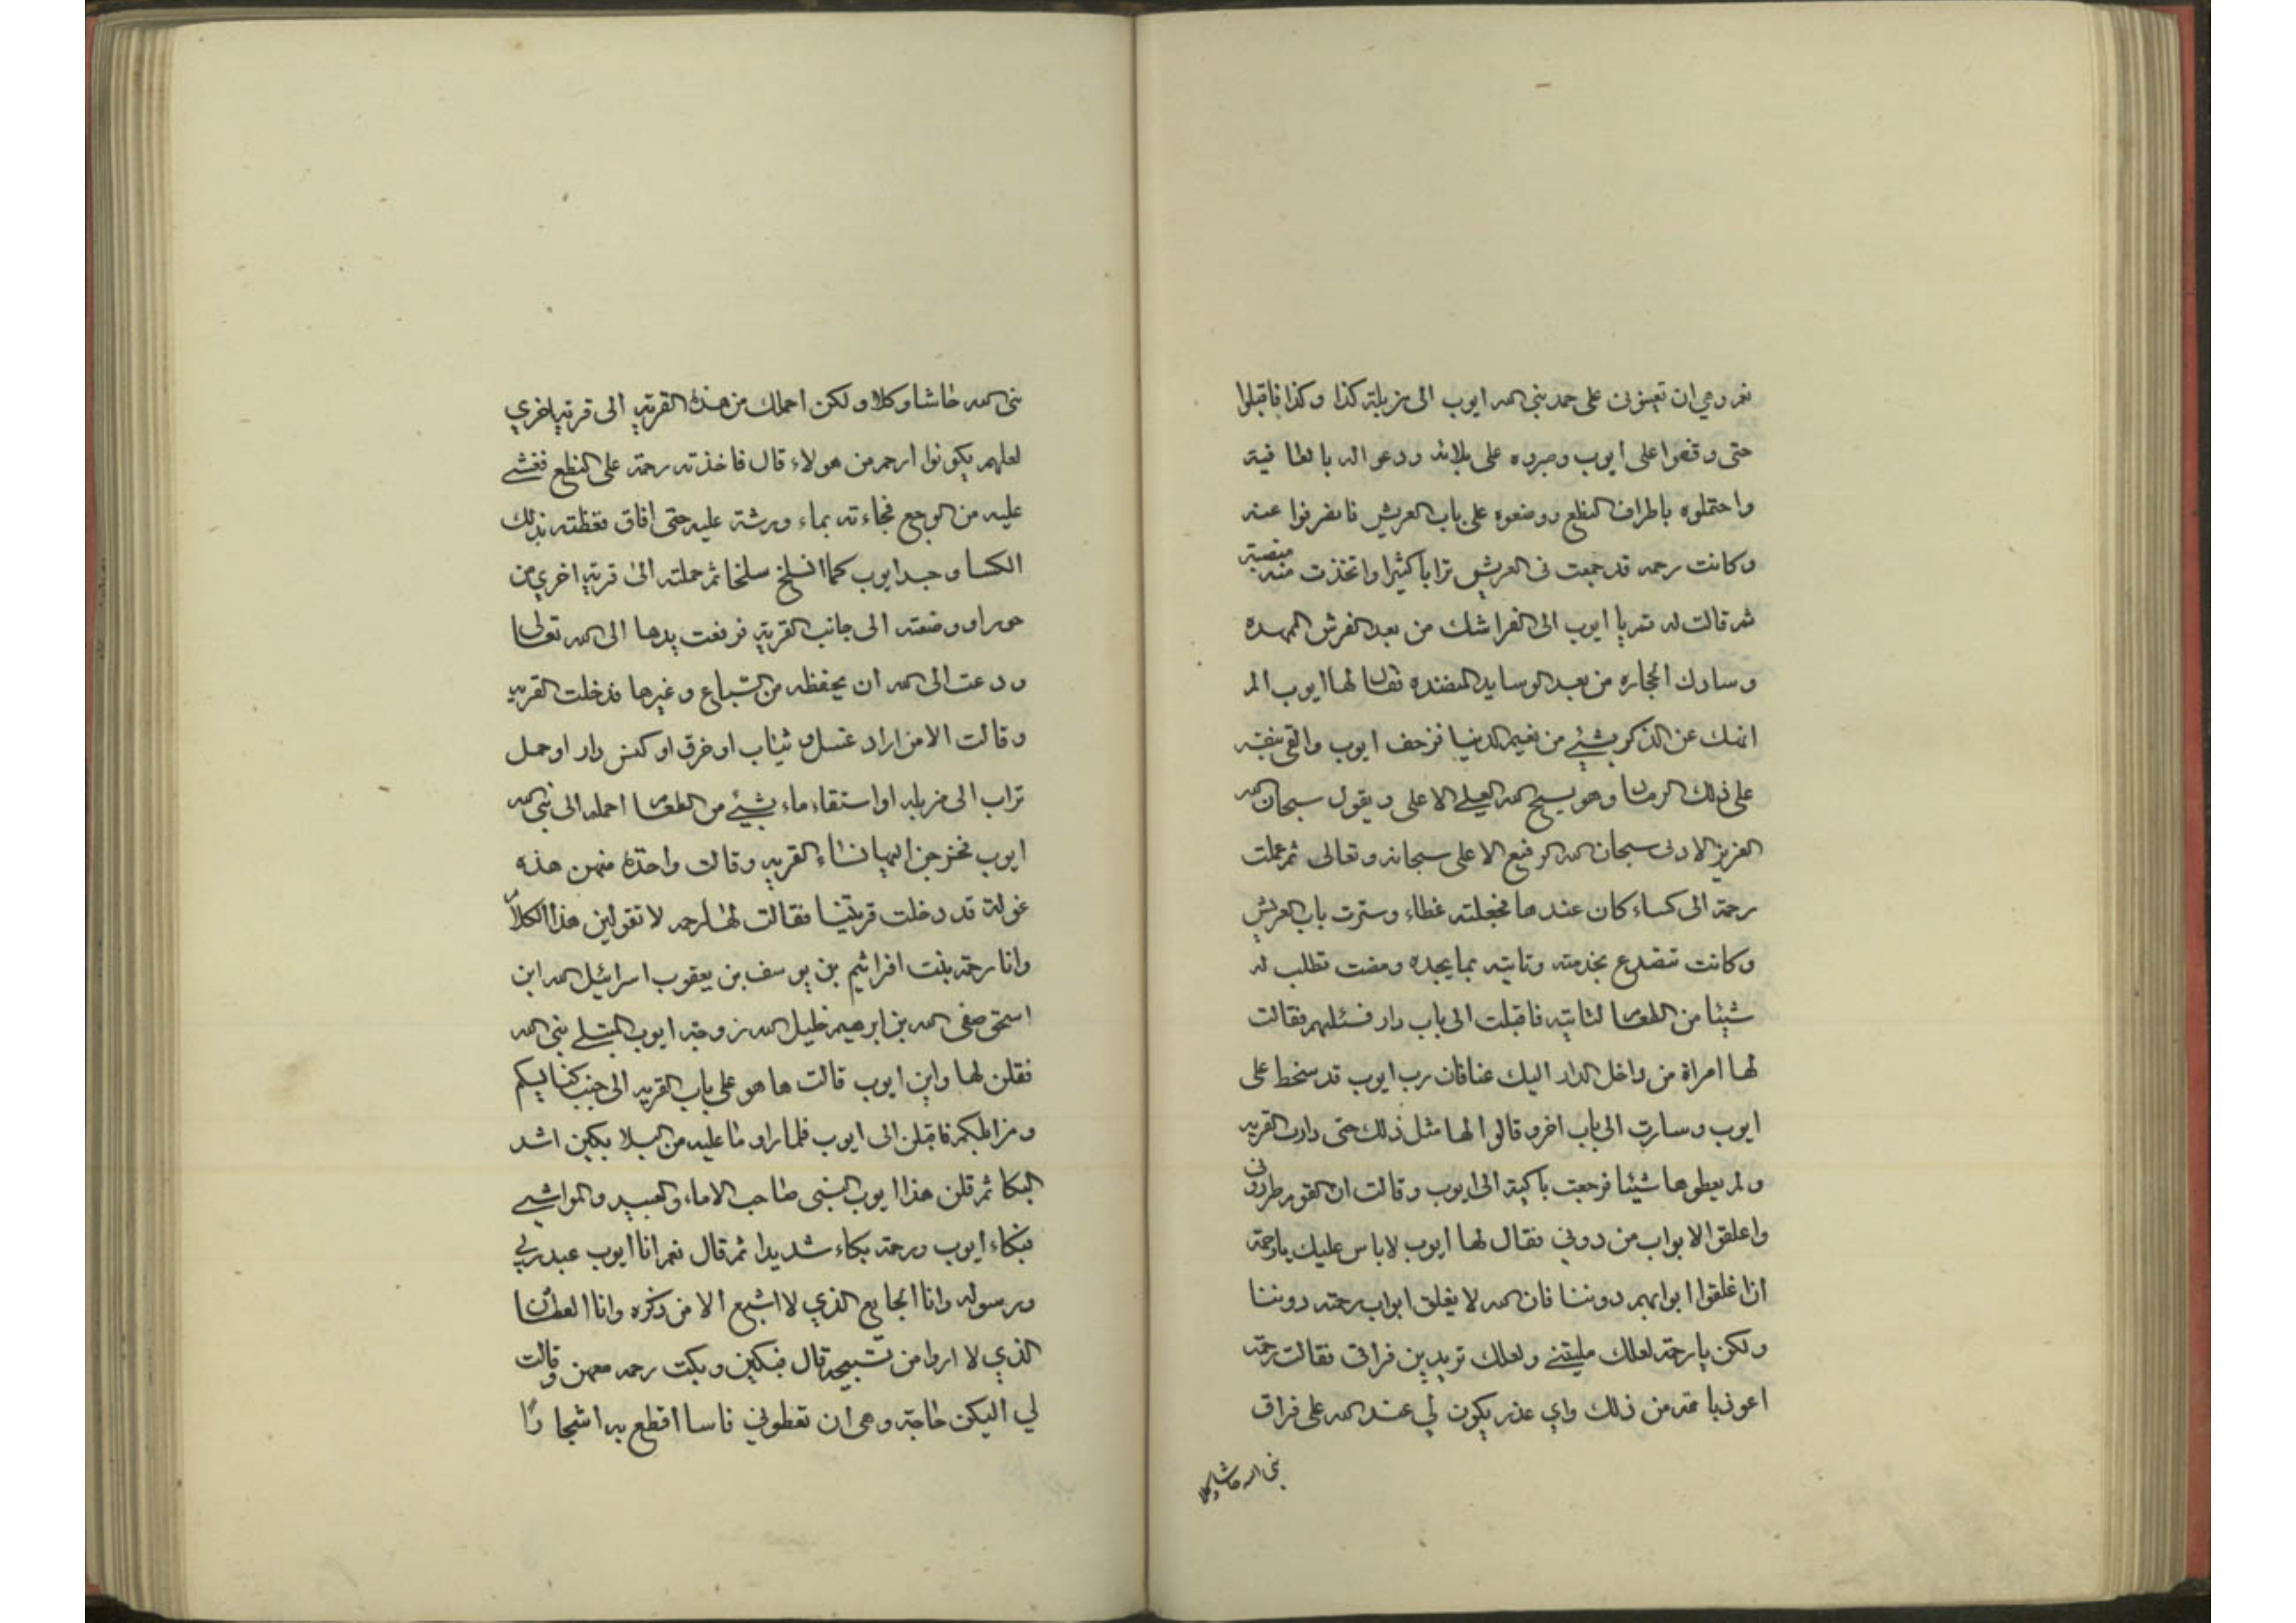 نعم وهي ان تعينوني على حمد نبي الله ايوب الى مزبلة كذا وكذا فاقبلوا
حتى وقفوا على ايوب وصبروه على بلائه ودعوا له بالعافية
واحتملوه باطراف النطع ووضعوه على باب العريش فانصرفوا عنه
وكانت رحمه قد جمعت فى العريش ترابا كثيرا واتخذت منه منصبة
ثم قالت له نم يا ايوب الى الفراشك من بعد الفرش الممهده
وسادك الحجاره من بعد الوسايد المنضده فقال لها ايوب الم
انهك عن الذكر بشيئ من نعيم الدنيا فزحف ايوب والقى بنفسه
على ذلك الرماد وهو يسبح الله العلي الاعلى ويقول سبحان الله
العزيز الادنى سبحان الله الرفيع الاعلى سبحانه وتعالى ثم عملت
رحمة الى كساء كان عندها فجعلته غطاء وسترت باب العريش
وكانت تتضرع بخدمته وتاتيه بما يجده ومضت تطلب له
شيئا من الطعام لتاتيه فاقبلت الى باب دار فسئلهم فقالت
لها امراة من داخل الدار اليك عنا فان رب ايوب قد سخط على
ايوب وسارت الى باب اخر وقالوا لها مثل ذلك حتى دارت القريه
ولم يعطوها شيئا فرجعت باكية الى ايوب وقالت ان القوم طردوني
واغلقوا الابواب من دوني فقال لها ايوب لا باس عليك يا رحمة
ان اغلقوا ابوابهم دوننا فان الله لا يغلق ابواب رحمته دوننا
ولكن يا رحمة لعلك مليتني ولعلك تريدين فراقى فقالت رحمة
اعوذ بالله من ذلك واي عذر يكون لي عند الله على فراق
نبى الله حاشا وكلا
نبى الله حاشا وكلا ولكن احملك من هذه القرية الى قرية اخري
لعلهم يكونوا ارحم من هولاء قال فاخذته رحمة على النطع فغشي
عليه من الوجع فجاءته بماء ورشة عليه حتى افاق فغطته بذلك
الكسا وجسد ايوب كما انسلخ سلخا ثم حملته الى قرية اخري من
حوراو وضعته الى جانب القرية فرفعت يدها الى الله تعالى
ودعت الى الله ان يحفظه من السباع وغيرها فدخلت القريه
وقالت الا من اراد غسل ثياب او خرق او كنس دار او حمل
تراب الى مزبله او استقاء ماء بشيئ من الطعام احمله الى نبى الله
ايوب فخرجن اليها نساء القريه وقالت واحدة منهن هذه
غولة قد دخلت قريتنا فقالت لها رحمه لا تقولين هذا الكلام
وانا رحمة بنت افراثيم بن يوسف بن يعقوب اسرائيل الله ابن
اسحق صفى الله بن ابرهيم خليل الله زوجة ايوب المبتلي نبى الله
فقلن لها واين ايوب قالت ها هو على باب القريه الى جنب كنايسكم
ومزابلكم فاقبلن الى ايوب فلما راو ما عليه من البلا بكين اشد
البكا ثم قلن هذا ايوب النبى صاحب الاماء والعبيد والمواشي
فبكاء ايوب ورحمة بكاء شديدا ثم قال نعم انا ايوب عبد ربي
ورسوله وانا الجايع الذي لا اشبع الا من ذكره وانا العطشان
الذي لا اروا من تسبيحه قال فبكين وبكت رحمه معهن وقالت
لي اليكن حاجة وهى ان تعطوني فاسا اقطع به اشجارا